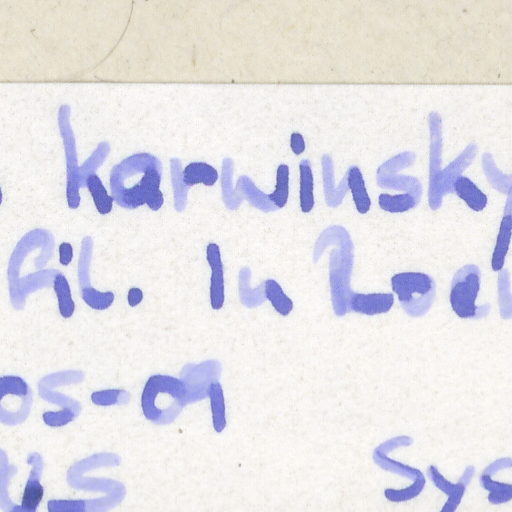 karwinsky
fil. In Roe
05-09
us Sys